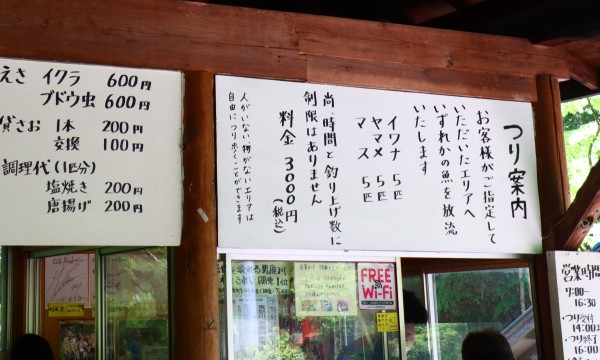 えさ イクラ 600円
ブドウ虫 600円
貸さお 1本 200円
交換 100円
調理代(1匹分)
塩焼き 200円
唐揚げ 200円
つり案内
お客様がご指定して
いただいたエリアへ
いずれかの魚を放流
いたします
イワナ 5匹
ヤマメ 5匹
マス 5匹
尚 時間と釣り上げ数に
制限はありません
料金 3000円(税込)
人がいない 物がないエリアは
自由につり歩くことができます
FREE
Wi-Fi
営業時間
9:00〜
16:30
・つり受付
14:00
・つり終了
16:00